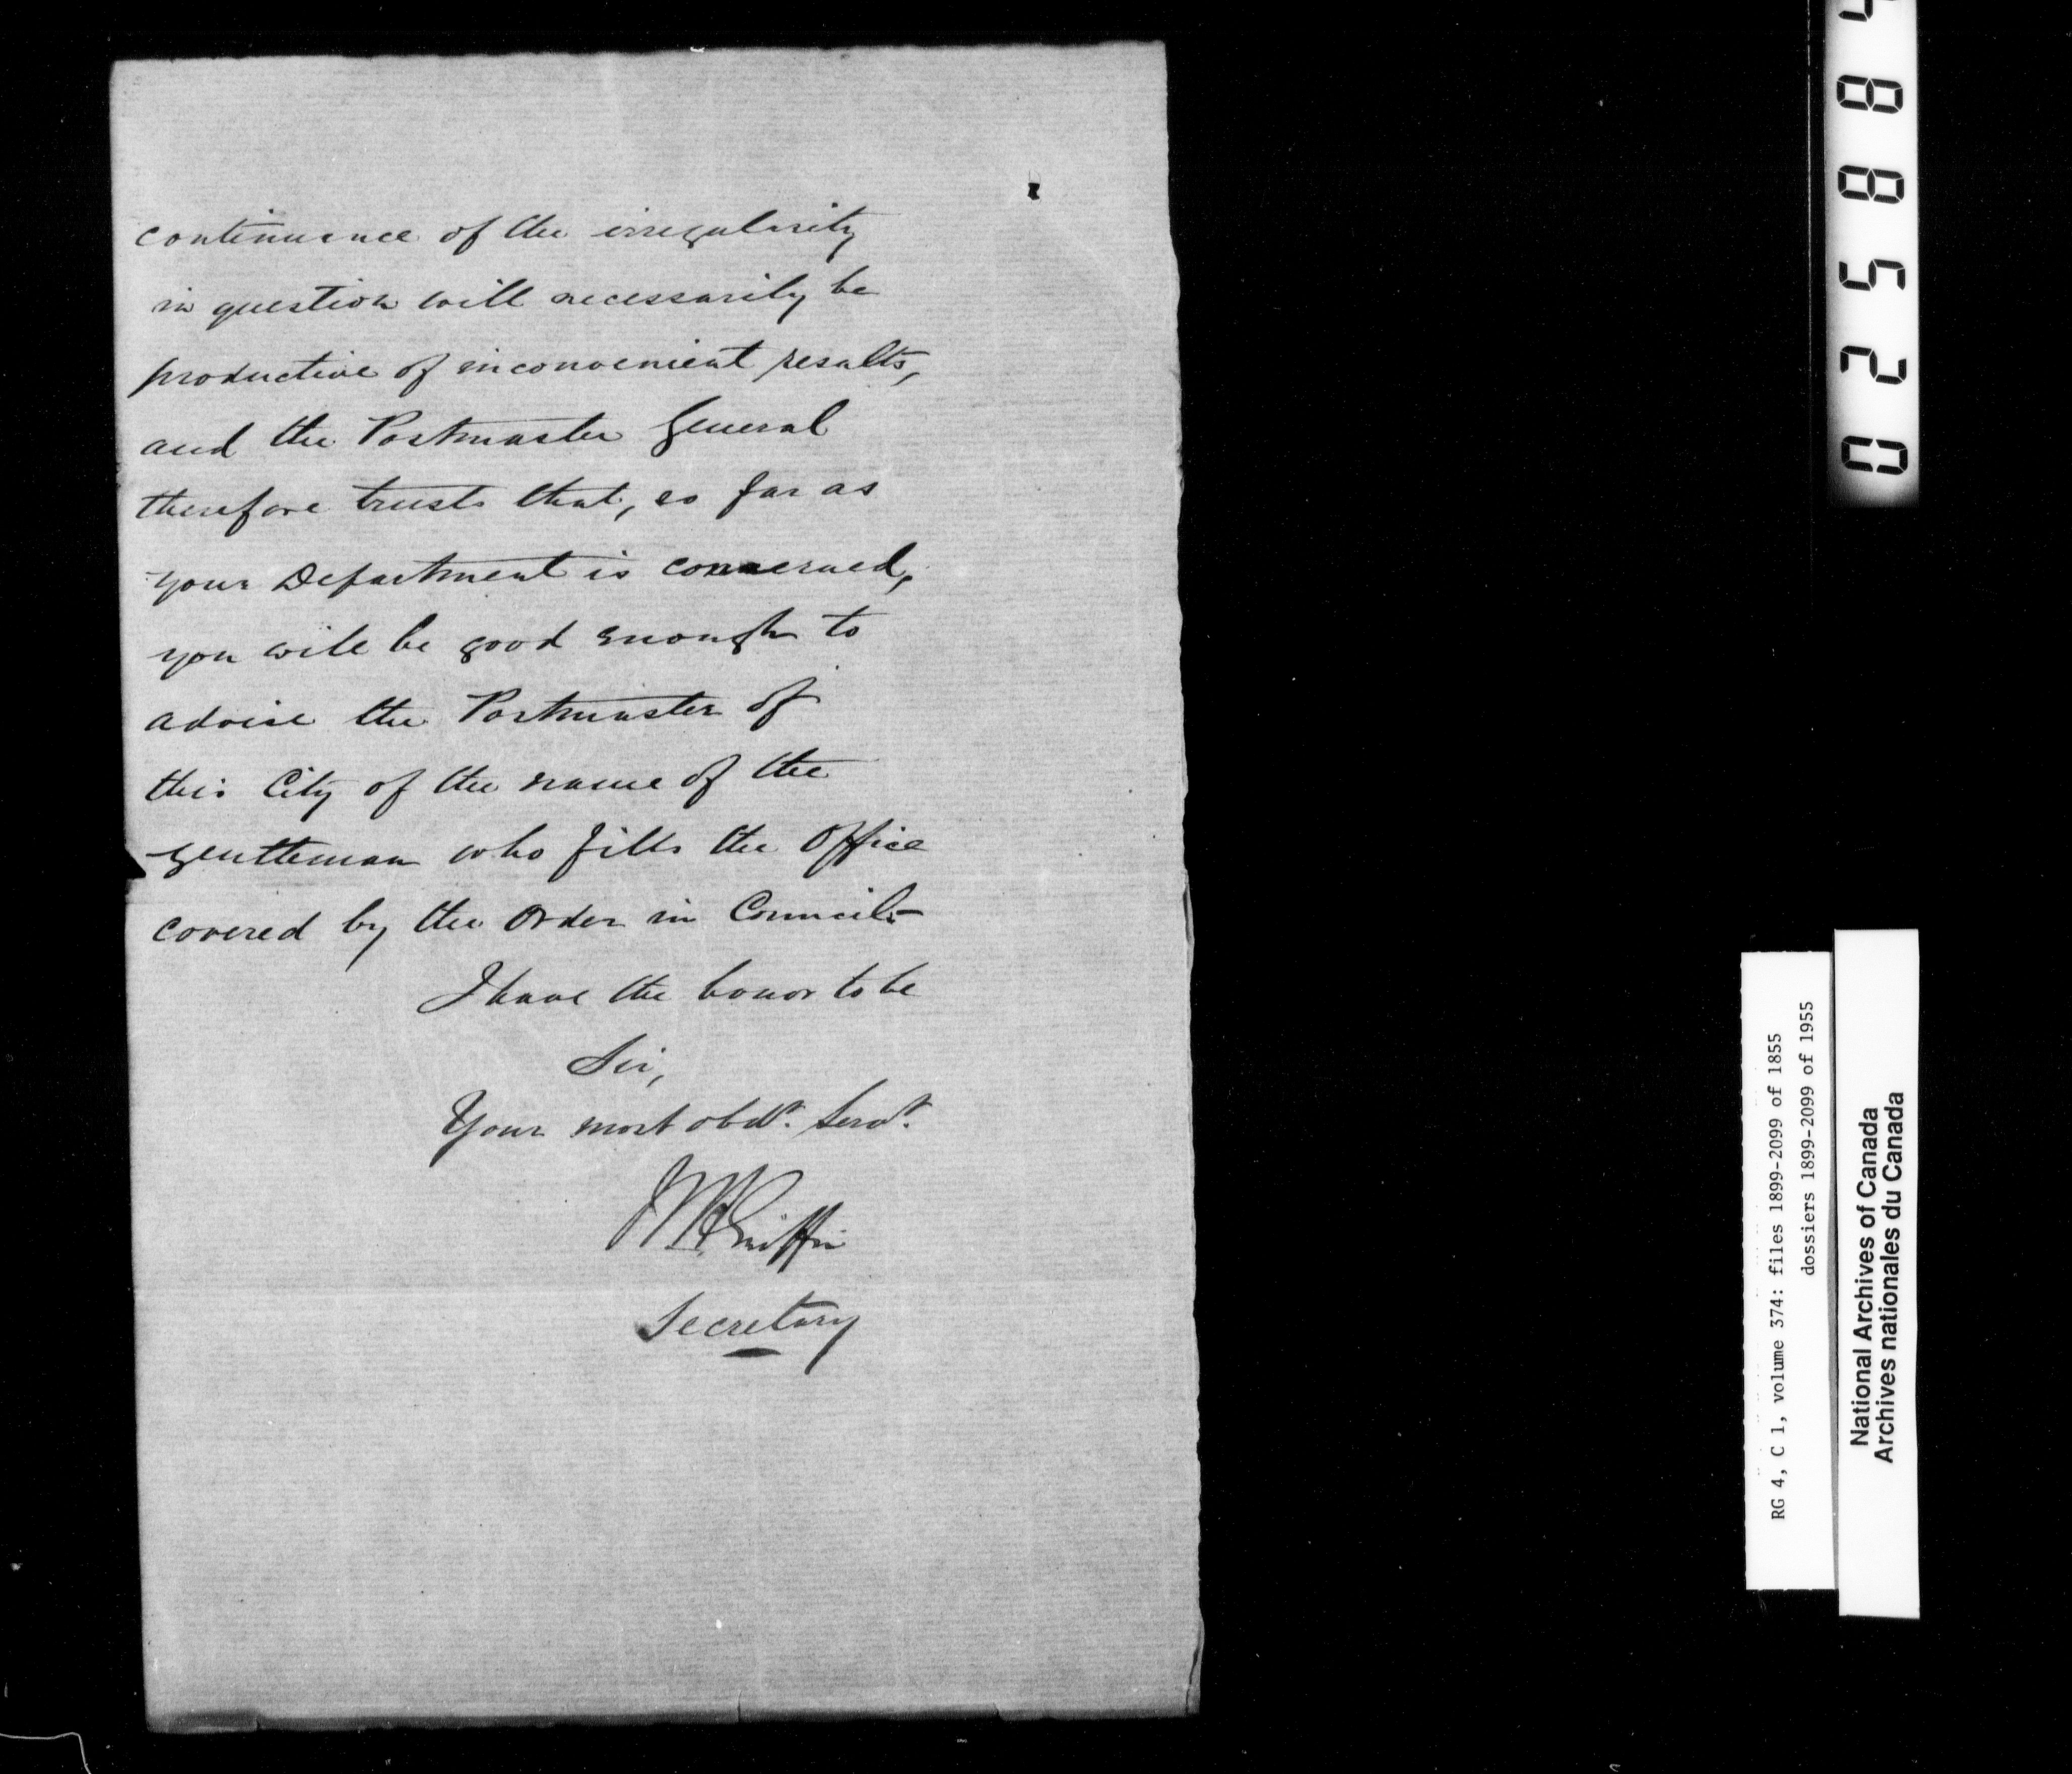 continuance of the irregularity
in question will necessarily be
productive of inconvenient results,
and the Postmaster General
therefore trusts that, so far as
your Department is concerned,
you will be good enough to
advise the Postmaster of
this City of the name of the
gentleman who fills the Office
covered by the Order in Council.-
I have the honor to be
Sir,
Your most obdt. Servt.
W H Griffin
Secretary
025884
RG 4, C 1, volume 374: files 1899-2099 of 1855
dossiers 1899-2099 of 1955
National Archives of Canada
Archives nationales du Canada